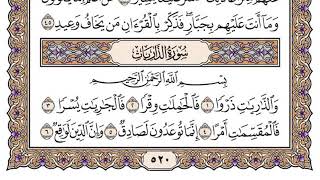 وَمَا أَنتَ عَلَيْهِم بِجَبَّارٍ ۖ فَذَكِّرْ بِالْقُرْءَانِ مَن يَخَافُ وَعِيدِ ٤٥
سُورَةُ الذَّارِيَاتِ
بِسْمِ اللَّهِ الرَّحْمَٰنِ الرَّحِيمِ
وَالذَّارِيَاتِ ذَرْوًا ١ فَالْحَامِلَاتِ وِقْرًا ٢ فَالْجَارِيَاتِ يُسْرًا ٣
فَالْمُقَسِّمَاتِ أَمْرًا ٤ إِنَّمَا تُوعَدُونَ لَصَادِقٌ ٥ وَإِنَّ الدِّينَ لَوَاقِعٌ ٦
٥٢٠